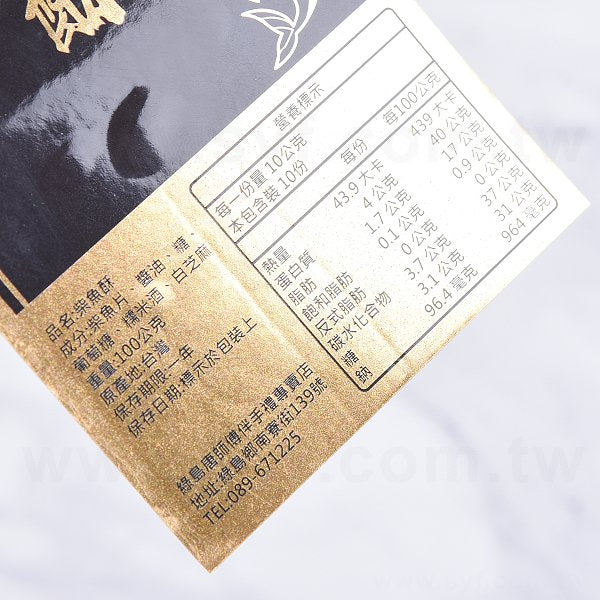 酥
營養標示
每一份量 10公克
本包含裝 10份
每份 每100公克
熱量 43.9 大卡 439 大卡
蛋白質 4 公克 40 公克
脂肪 1.7 公克 17 公克
飽和脂肪 0.1 公克 0.9 公克
反式脂肪 0 公克 0 公克
碳水化合物 3.7 公克 37 公克
糖 3.1 公克 31 公克
鈉 96.4 毫克 964 毫克
品名:柴魚酥
成分:柴魚片、醬油、糖、
葡萄糖、糯米酒、白芝麻
重量:100公克
原產地:台灣
保存期限:一年
保存日期:標示於包裝上
綠島唐師傅伴手禮專賣店
地址:綠島鄉南寮街139號
TEL:089-671225